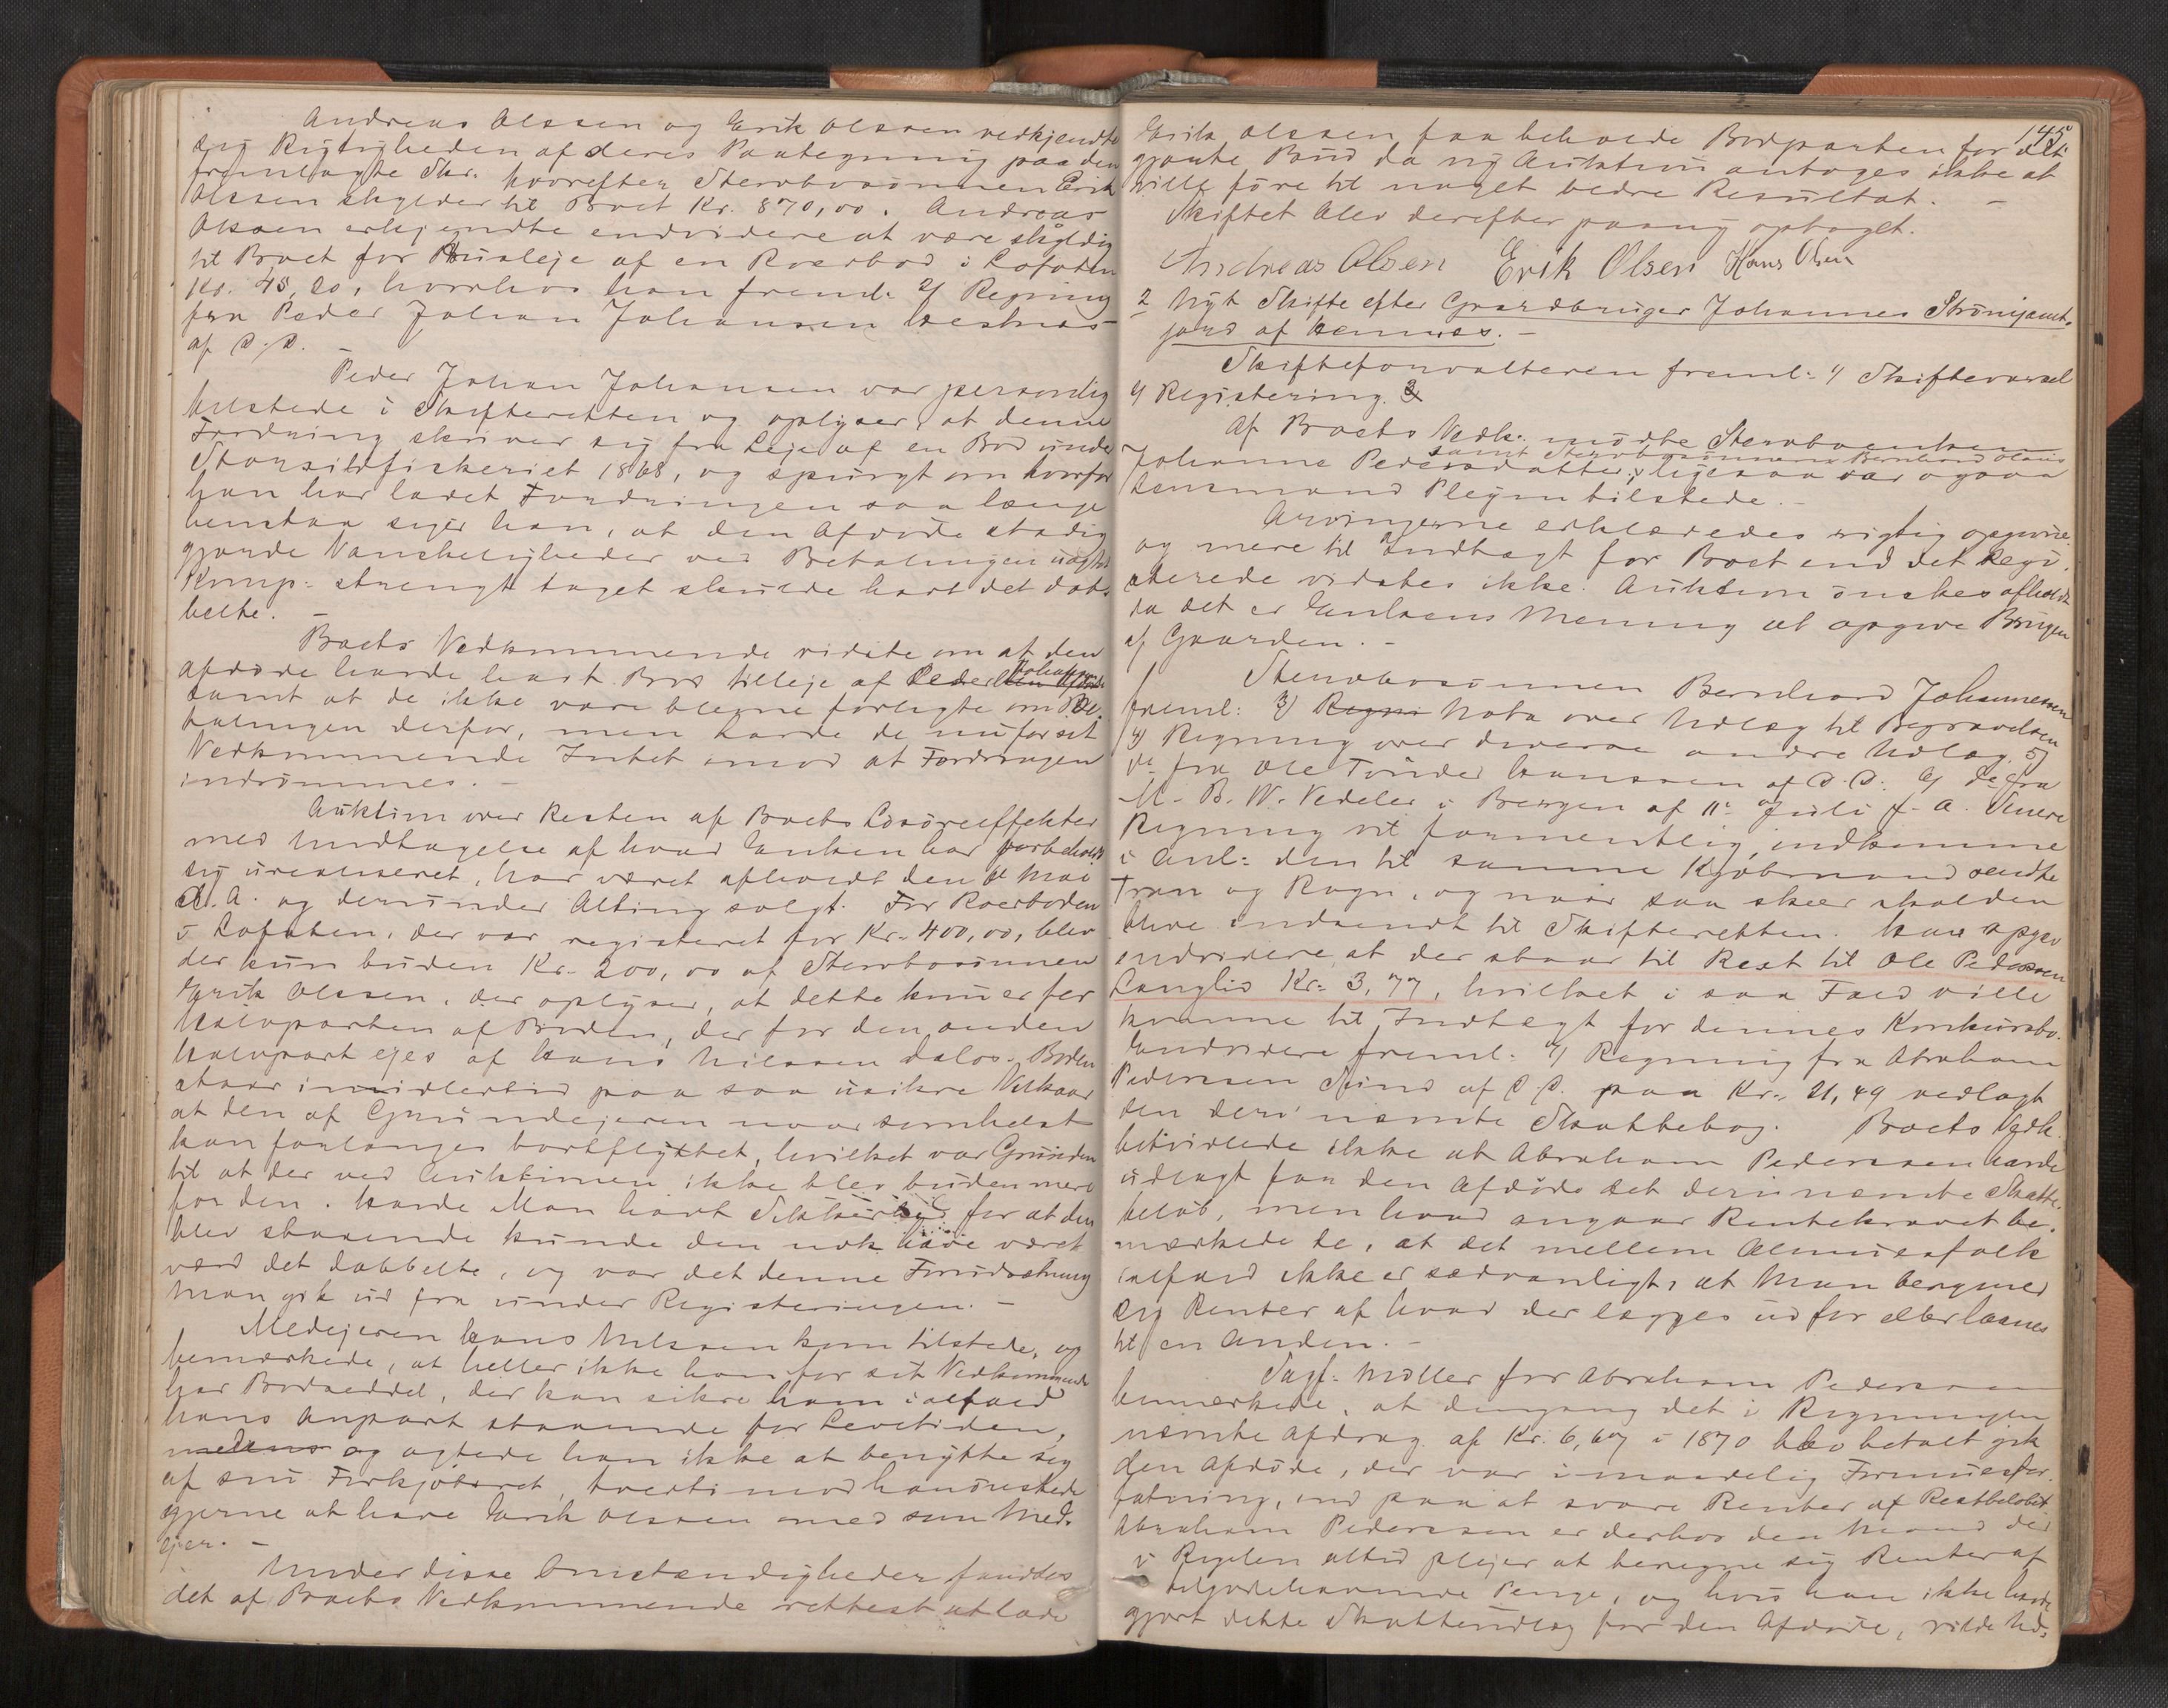 Andreas Olssen og Erik Olssen vedkjendte
sig Rigtigheden af deres Paategning paa den
fremlagte Skr. hvorefter Sterbosønnen Erik
Olssen skylder til Boet Kr. 870,00. Andreas
Olssen erkjendte endvidere at være skyldig
til Boet for Husleje af en Roerbod i Lofoten
Kr. 48,20, hvorhos han freml. 2/ Regning
fra Peder Johan Johansen
af D.D. -
Peder Johan Johansen var personlig
tilstede i Skifteretten og oplyser, at denne
Fordring skriver sig fra Leje af en Bod under
Storsildfiskeriet 1868, og spurgt om hvorfor
han har ladet Fordringen saa længe
henstaa siger han, at den Afdøde stadig
gjorde Vanskeligheder ved Betalingen uagtet
Komp: strengt taget skulde havt det dob-
belte. -
Boets Vedkommende vidste om at den
Afdøde havde havt Bod tilleje af Peder Johansen
samt at de ikke vare blevne forligte om Be-
talingen derfor, men havde de nu for sit
Vedkommende Intet imod at Fordringen
indrømmes. -
Auktion over Resten af Boets Løsøreeffekter
med Undtagelse af hvad Enken har forbeholdt
sig urealiseret, har været afholdt den Mai
d. A. og derunder Alting solgt. For Roerboden
i Lofoten, der var registeret for Kr. 400,00, blev
der kun buden Kr. 200,00 af Sterbosønnen
Erik Olssen, der oplyser, at dette kun er for
Halvparten af Boden, der for den anden
Halvpart ejes af Hans Nilssen Dalos. Boden
staar imidlertid paa saa usikre Vilkaar
at den af Grundejeren naarsomhelst
kan forlanges bortflyttet, hvilket var Grunden
til at der ved Auktionen ikke blev buden mere
for den. Havde Man havt Sikkerhed for at den
blev staaende kunde den nok have været
værd det dobbelte, og var det denne Forudsætning
Man gik ud fra under Registeringen. -
Medejeren Hans Nilssen kom tilstede, og
bemærkede, at heller ikke han for sit Vedkommende
har Bodseddel, der kan sikre ham ialfald
hans Anpart staaende for Levetiden,
medens og agtede han ikke at benytte sig
af sin Forkjøbsret, tvertimod han ønskede
gjerne at have Erik Olssen med som Med-
ejer. -
Under disse Omstændigheder fandtes
det af Boets Vedkommende rettest at lade
145
Erik Olssen faa beholde Bodparten for det
gjorte Bud da ny Auktion antoges ikke at
ville føre til noget bedre Resultat. -
Skiftet blev derefter paany optaget.
Andreas Olsen Erik Olsen Hans Olsen
2 Nyt Skifte efter Gaardbruger Johannes
af . -
Skifteforvalteren freml: 1/ Skiftevarsel
2/ Registering.
Af Boets Vedk: mødte Sterboenken
samt Sterbosønnerne Bernhard
Johanna Pedersdatter; ligesaa var ogsaa
Lensmand Pleym tilstede. -
Arvingerne erklæredes rigtig opgivne
og mere til Indtægt for Boet end det Regi-
sterede vidstes ikke. Auktion ønskes afholdt
da det er Enkens Mening at opgive Brugen
af Gaarden. -
Sterbosønnen Bernhard Johannessen
freml: 3/ Regni Nota over Udlæg til Begravelsen
4/ Regning over diverse andre Udlæg. 5/
do fra Ole Tønder Hanssen af D.D. 6/ do fra
M. B. W. Vedeler i Bergen af 11te Juli f. A. Senere
Regning vil formentlig indkomme
i Anl: den til samme Kjøbmand sendte
Tran og Rogn, og naar saa skeer skal den
blive indsendt til Skifteretten. Han opgav
endvidere, at der staar til Rest til Ole Pederssen
Langlid Kr. 3,77, hvilket i saa Fald ville
komme til Indtægt for dennes Konkursbo.
Endvidere freml: 7/ Regning fra Abraham
Pederssen af D.D. paa Kr. 21,49 vedlagt
den deri nævnte Skattebog. Boets Vedk.
betvivlede ikke at Abraham Pederssen havde
udlagt for den Afdøde det deri nævnte Skatte-
beløb, men hvad angaar Rentekravet be-
mærkede de, at det mellem Almuesfolk
ialfald ikke er sædvanligt, at Man beregner
sig Renter af hvad der lægges ud for eller laanes
til en Anden. -
Sagf. Møller for Abraham Pederssen
bemærkede, at dengang det i Regningen
nævnte Afdrag af Kr. 6,67 i 1870 blev betalt gik
den Afdøde, der var i maadelig Formuesfor-
fatning, ind paa at svare Renter af Restbeløbet
Abraham Pederssen er derhos den Mand der
i Regelen altid plejer at beregne sig Renter af
tilgodehavende Penge, og hvis han ikke havde
gjort dette Skatteudlæg for den Afdøde, vilde Ud-